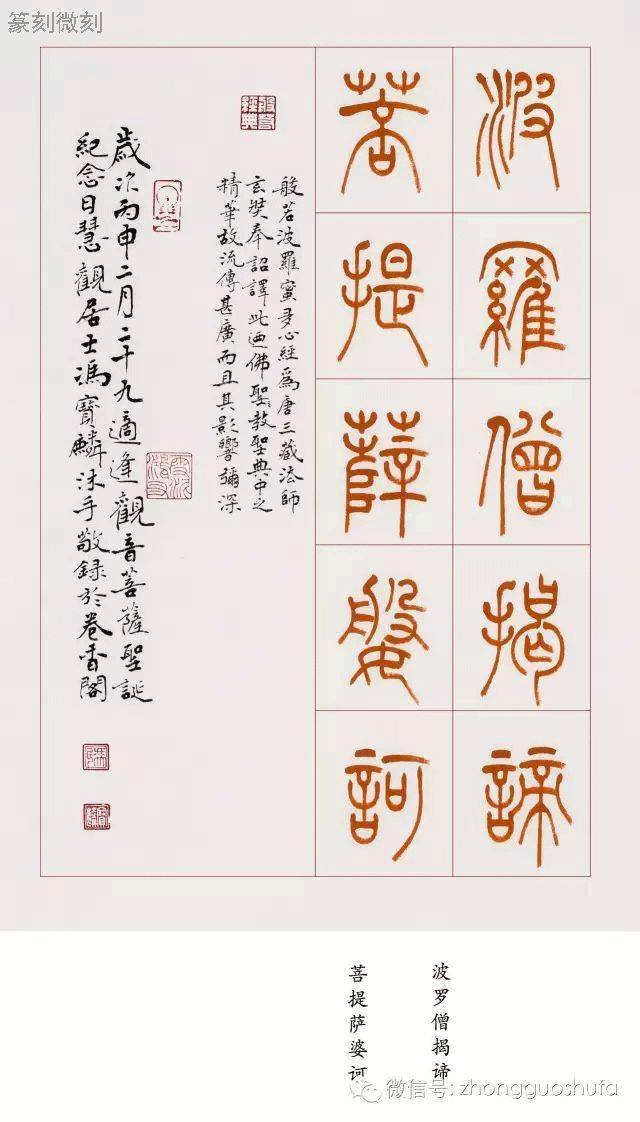 篆刻微刻
波羅僧揭諦
菩提薩婆訶
般若波羅蜜多心經爲唐三藏法師
玄奘奉詔譯此迺佛聖教聖典中之
精華故流傳甚廣而且其影響彌深
歲次丙申二月二十九適逢觀音菩薩聖誕
紀念日慧觀居士馮寶麟沐手敬録於卷香閣
波罗僧揭谛
菩提萨婆诃
微信号: zhongguoshufa